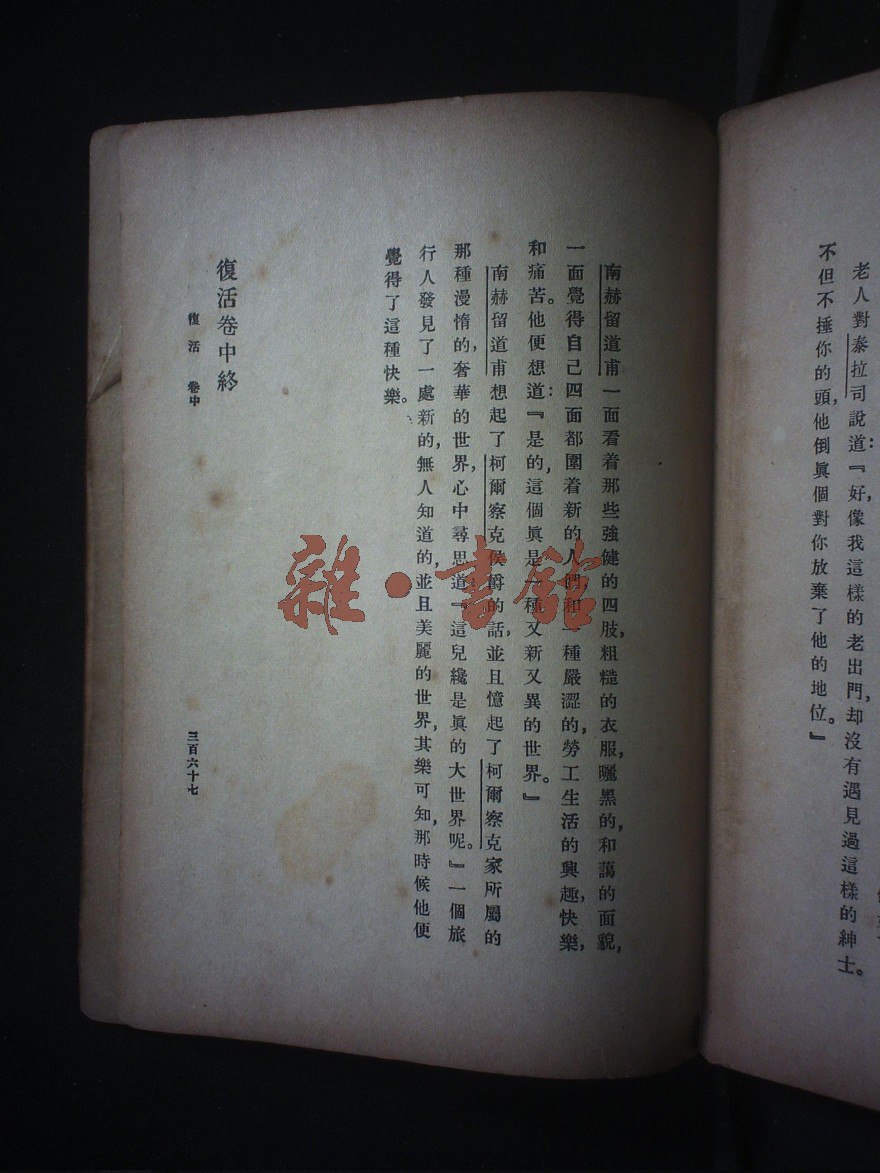 老人對泰拉司說道：『好，像我這樣的老出門，却沒有遇見過這樣的紳士。
不但不捶你的頭，他倒眞個對你放棄了他的地位。』
南赫留道甫一面看着那些強健的四肢，粗糙的衣服，曬黑的，和藹的面貌，
一面覺得自己四面都圍着新的人們，和一種嚴澀的，勞工生活的興趣，快樂，
和痛苦。他便想道：『是的，這個眞是一種又新又異的世界。』
南赫留道甫想起了柯爾察克侯爵的話，並且憶起了柯爾察克家所屬的
那種漫惰的，奢華的世界，心中尋思道『這兒纔是眞的大世界呢。』一個旅
行人發見了一處新的，無人知道的，並且美麗的世界，其樂可知，那時候他便
覺得了這種快樂。
復活卷中終
復活 卷中
三百六十七
雜·書館